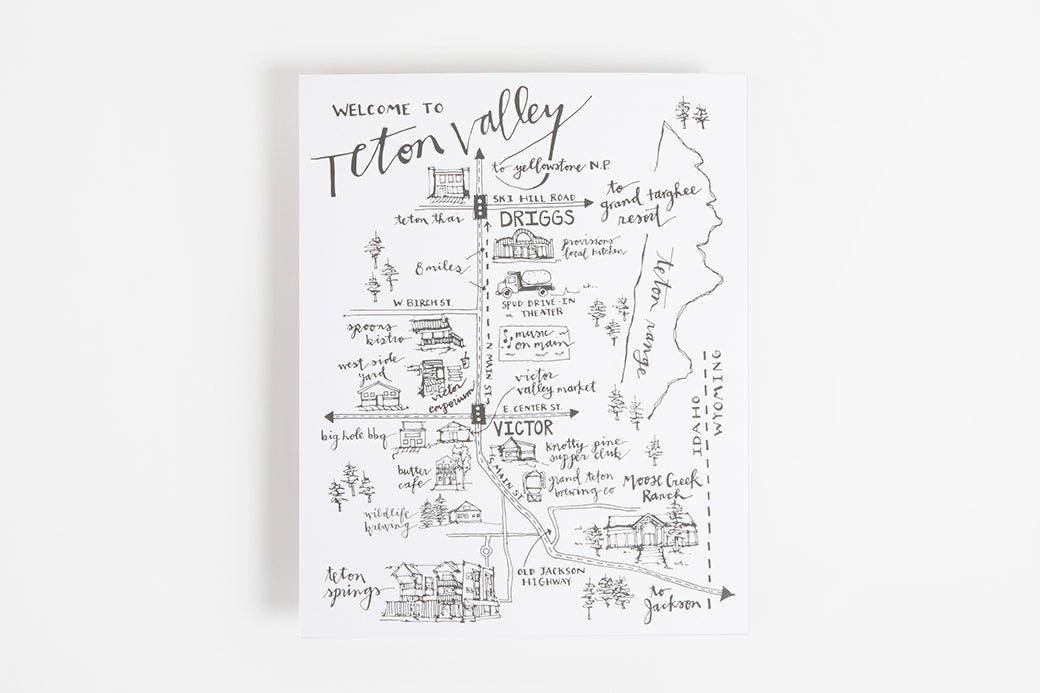 WELCOME TO
Teton Valley
to yellowstone N.P.
SKI HILL ROAD
to
grand targhee
resort
teton thai
DRIGGS
provisions
local kitchen
8 miles
SPUD DRIVE-IN
THEATER
W. BIRCH ST.
spoons
bistro
music
on main
N MAIN ST.
teton range
west side
yard
victor
emporium
victor
valley market
E. CENTER ST.
VICTOR
big hole bbq
knotty pine
supper club
butter
cafe
S. MAIN ST.
grand teton
brewing co
Moose Creek
Ranch
IDAHO
WYOMING
wildlife
brewing
teton
springs
OLD JACKSON
HIGHWAY
to
Jackson